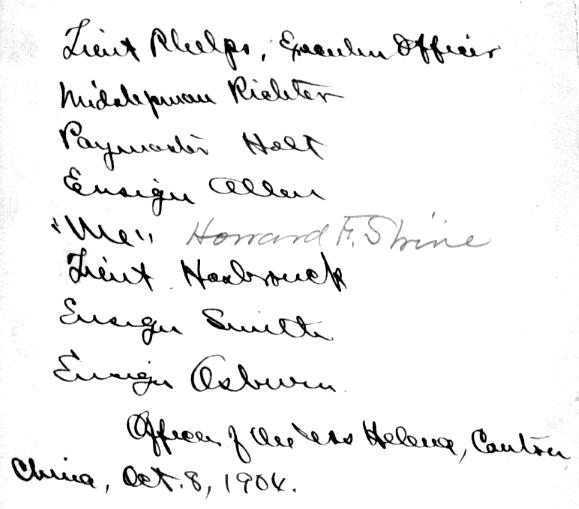 Lieut Phelps, Executive Officer
Midshipman Richter
Paymaster Helt
Ensign Allen
"Me" Howard F. Shine
Lieut Hasbrouck
Ensign Smith
Ensign Osburn
Officers of the USS Helena, Canton
China, Oct. 8, 1904.